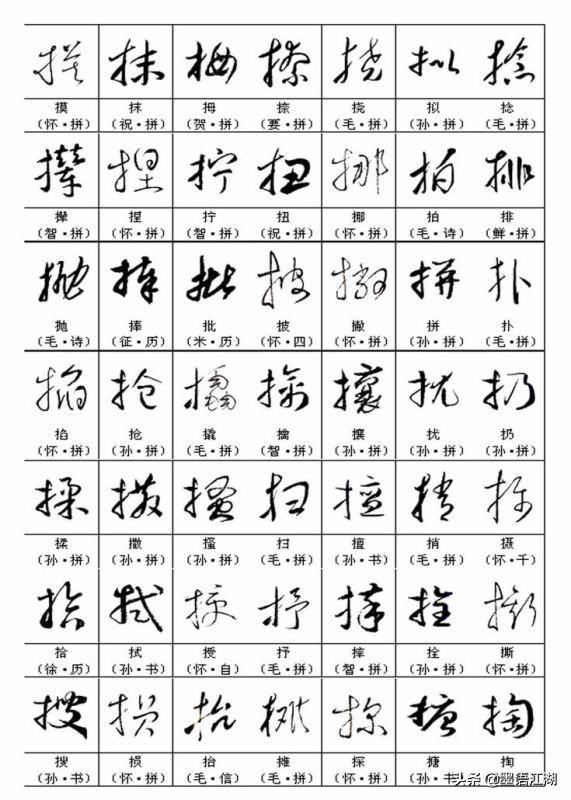 摸 抹 拇 捺 挠 拟 捻
（怀·拼） （祝·拼） （贺·拼） （要·拼） （毛·拼） （孙·拼） （毛·拼）
撵 捏 拧 扭 挪 拍 排
（智·拼） （怀·拼） （智·拼） （祝·拼） （怀·拼） （毛·诗） （鲜·拼）
抛 捧 批 披 撇 拼 扑
（毛·诗） （征·历） （米·历） （怀·四） （怀·拼） （孙·拼） （毛·拼）
掐 抢 撬 擒 攘 扰 扔
（怀·拼） （孙·拼） （毛·拼） （智·拼） （孙·拼） （孙·拼） （孙·拼）
揉 撒 搔 扫 擅 捎 摄
（孙·拼） （孙·拼） （孙·拼） （毛·拼） （孙·书） （毛·拼） （怀·千）
拾 拭 授 抒 摔 拴 撕
（徐·历） （孙·书） （怀·自） （毛·拼） （智·拼） （孙·拼） （怀·拼）
搜 损 抬 摊 探 搪 掏
（孙·书） （怀·拼） （毛·信） （毛·拼） （怀·拼） （孙·书
头条 @墨语江湖